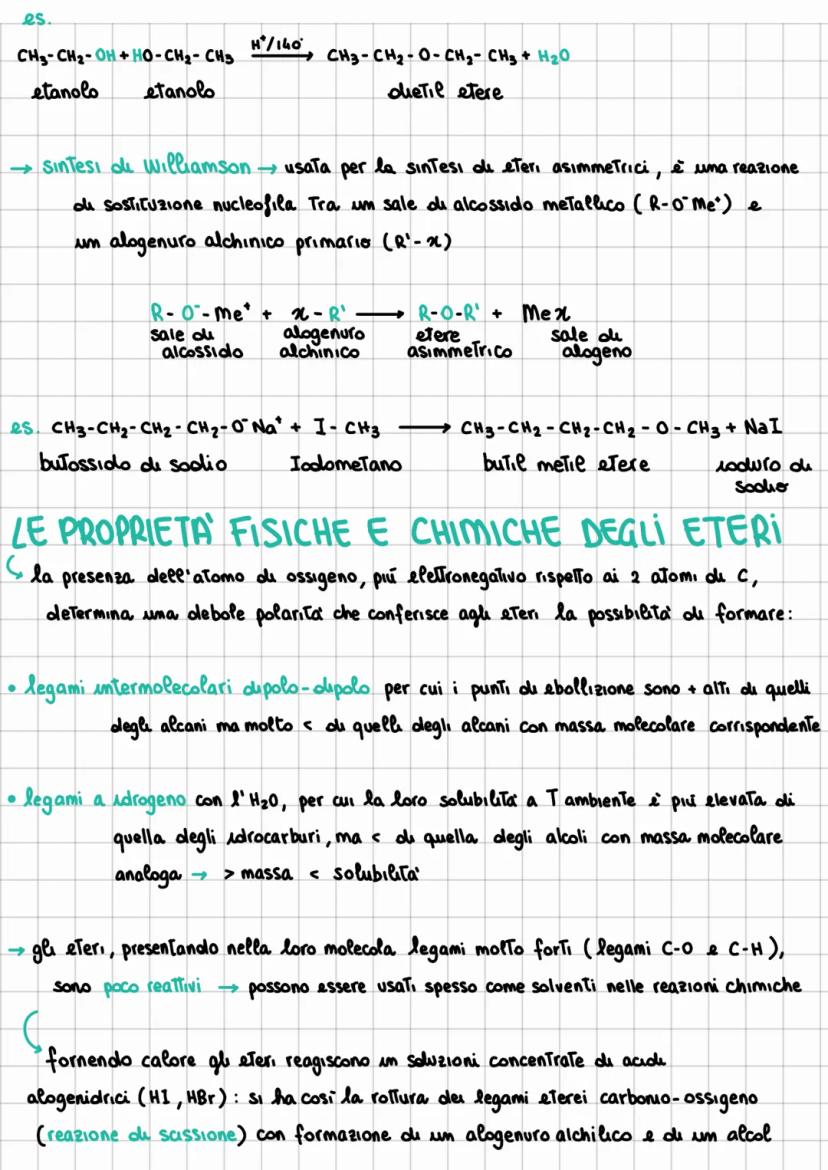 es.
CH₃-CH₂-OH + HO-CH₂-CH₃ H⁺/140° → CH₃-CH₂-O-CH₂-CH₃ + H₂O
etanolo etanolo dietil etere
→ sintesi di Williamson → usata per la sintesi di eteri asimmetrici, è una reazione
di sostituzione nucleofila tra un sale di alcossido metallico (R-O⁻Me⁺) e
un alogenuro alchinico primario (R'-x)
R-O⁻-Me⁺ + x-R' → R-O-R' + Mex
sale di alogenuro etere sale di
alcossido alchinico asimmetrico alogeno
es. CH₃-CH₂-CH₂-CH₂-O⁻Na⁺ + I-CH₃ → CH₃-CH₂-CH₂-CH₂-O-CH₃ + NaI
butossido di sodio Iodometano butil metil etere ioduro di
sodio
LE PROPRIETA' FISICHE E CHIMICHE DEGLI ETERI
la presenza dell'atomo di ossigeno, piú elettronegativo rispetto ai 2 atomi di C,
determina una debole polarità che conferisce agli eteri la possibilità di formare:
• legami intermolecolari dipolo-dipolo per cui i punti di ebollizione sono + alti di quelli
degli alcani ma molto < di quelli degli alcani con massa molecolare corrispondente
• legami a idrogeno con l'H₂O, per cui la loro solubilità a T ambiente è piú elevata di
quella degli idrocarburi, ma < di quella degli alcoli con massa molecolare
analoga → > massa < solubilità
→ gli eteri, presentando nella loro molecola legami molto forti (legami C-O e C-H),
sono poco reattivi → possono essere usati spesso come solventi nelle reazioni chimiche
fornendo calore gli eteri reagiscono in soluzioni concentrate di acidi
alogenidrici (HI, HBr): si ha così la rottura dei legami eterei carbonio-ossigeno
(reazione di scissione) con formazione di un alogenuro alchilico e di un alcol